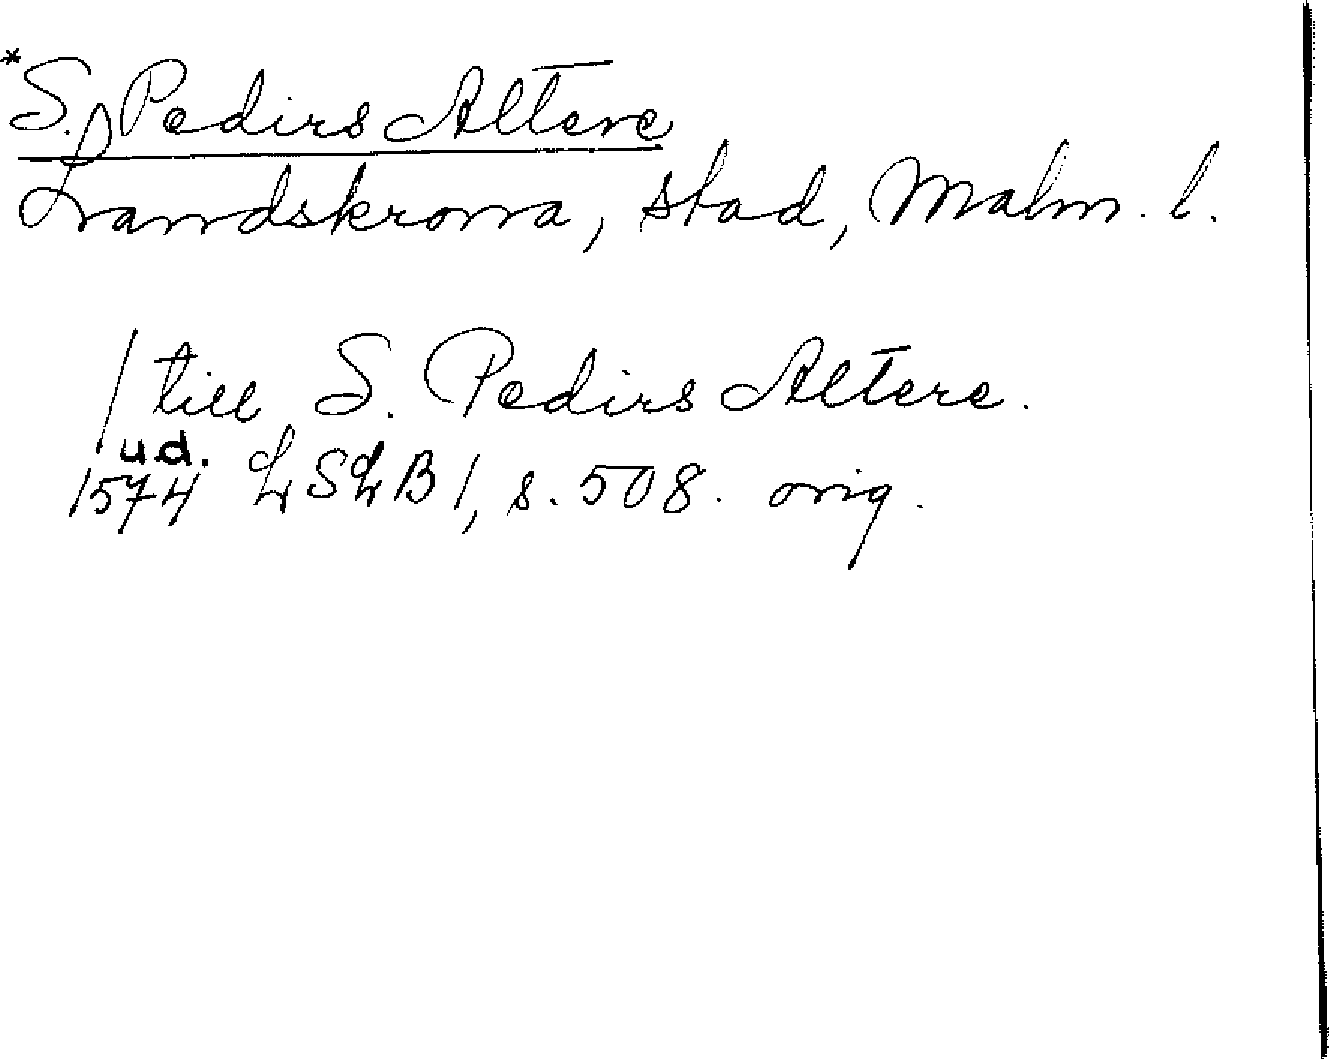 *S. Pedirs Altere
Landskrona, stad, Malm. l.
/ till S. Pedirs Altere.
u.d.
1574 LSLB 1, s. 508. orig.